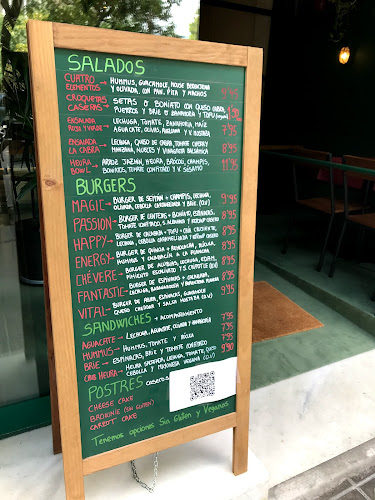 SALADOS
CUATRO ELEMENTOS HUMMUS, GUACAMOLE, MOUSE BERENJENA
Y OLIVADA, CON PAN, PITA Y NACHOS 9'95
CROQUETAS CASERAS SETAS O BONIATO CON QUESO CABRA
PUERROS Y BRIE O ZANAHORIA Y TOFU 1'90
ENSALADA LECHUGA, TOMATE, ZANAHORIA, MAÍZ
AGUACATE, OLIVAS, 7'95
ENSALADA LA CABRA LECHUGA, QUESO DE CABRA, TOMATE CHERRY
MANZANA, NUECES Y VINAGRETA BALSÁMICA 8'95
HEURA BOWL ARROZ JAZMÍN, HEURA, BRÓCOLI, CHAMPIS,
TOMATE CONFITADO Y V. SÉSAMO 11'95
BURGERS
MAGIC BURGER DE SEITÁN + CHAMPIS, LECHUGA,
CEBOLLA CARAMELIZADA Y BRIE (O.V) 9'95
PASSION BURGER DE LENTEJAS + BONIATO, ESPINACAS,
TOMATE CONFITADO, 8'95
HAPPY BURGER DE CALABAZA + TOFU + CHÍA CRUJIENTE,
LECHUGA, CEBOLLA CARAMELIZADA Y KETCHUP CASERO 8'95
ENERGY BURGER DE QUINOA + REMOLACHA, RÚCULA,
HUMMUS Y CALABACÍN A LA PLANCHA 8'95
CHÉVERE BURGER DE ALUBIAS, LECHUGA,
PIMIENTO ESCALIVADO Y S. CHIPOTLE (O.V) 8'95
FANTASTIC BURGER DE ESPINACAS + CALABAZA,
LECHUGA, 8'95
VITAL BURGER DE HEURA, ESPINACAS, GUACAMOLE
QUESO CHEDDAR Y SALSA MOSTAZA (O.V) 9'95
SANDWICHES + ACOMPAÑAMIENTO
AGUACATE - LECHUGA, AGUACATE, OLIVADA Y ZANAHORIA 7'95
HUMMUS - HUMMUS, TOMATE Y RÚCULA 7'95
BRIE - ESPINACAS, BRIE Y TOMATE CONFITADO 7'95
HEURA - HEURA, LECHUGA, TOMATE, QUESO
CEBOLLA Y MAYONESA VEGANA (O.V) 9'90
POSTRES CASEROS
CHEESE CAKE
BROWNIE (SIN GLUTEN)
CARROT CAKE
Tenemos opciones Sin Gluten y Veganas